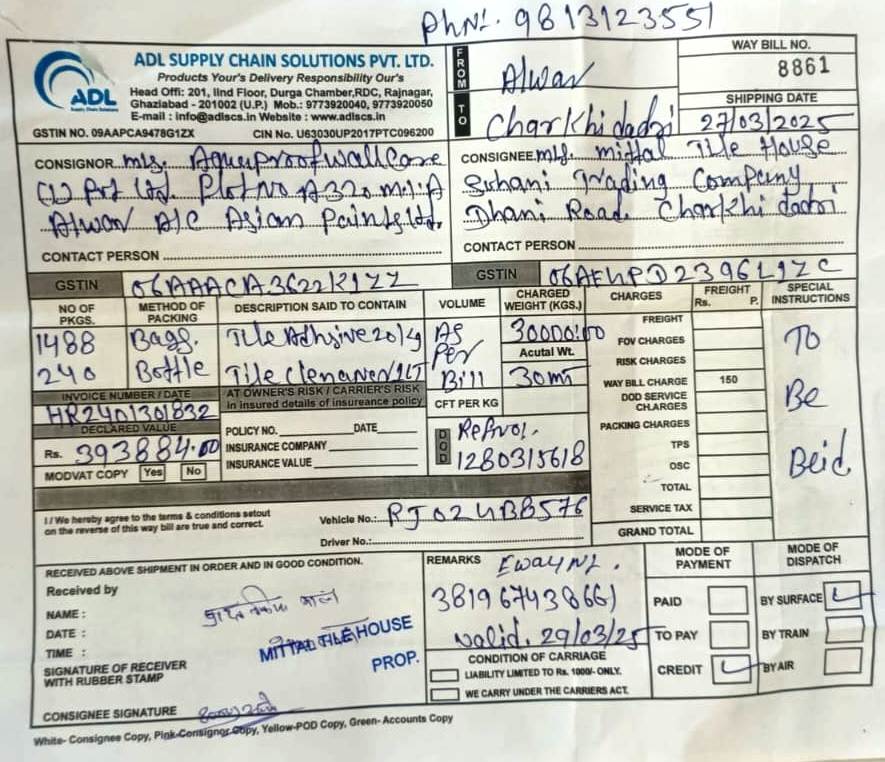 PhNo. 9813123551
ADL
Supply Chain Solutions
ADL SUPPLY CHAIN SOLUTIONS PVT. LTD.
Products Your's Delivery Responsibility Our's
Head Offi: 201, IInd Floor, Durga Chamber,RDC, Rajnagar,
Ghaziabad - 201002 (U.P.) Mob.: 9773920040, 9773920050
E-mail : info@adlscs.in Website : www.adlscs.in
GSTIN NO. 09AAPCA9478G1ZX CIN No. U63030UP2017PTC096200
FROM Alwar
TO Charkhi dadri
WAY BILL NO.
8861
SHIPPING DATE
27/03/2025
CONSIGNOR m/s. Aquaproof wall Care
(I) Pvt Ltd. Plot No A320 m.I.A
Alwar A/C Asian Paints Ltd.
CONTACT PERSON
CONSIGNEE m/s. mittal Tile House
Suhani Trading Company
Dhani Road Charkhi dadri
CONTACT PERSON
GSTIN 06AAACA3622K1ZZ
GSTIN
NO OF PKGS. METHOD OF PACKING DESCRIPTION SAID TO CONTAIN VOLUME CHARGED WEIGHT (KGS.) CHARGES FREIGHT Rs. P. SPECIAL INSTRUCTIONS
1488 Bags. Tile Adhsive 20kg As 30000.00
Per Acutal Wt.
240 Bottle Tile 1LT Bill 30mt
FREIGHT
FOV CHARGES
RISK CHARGES
WAY BILL CHARGE 150
DOD SERVICE CHARGES
PACKING CHARGES
TPS
OSC
TOTAL
SERVICE TAX
GRAND TOTAL
To
Be
INVOICE NUMBER / DATE
HR2401301832
DECLARED VALUE
Rs. 393884.00
MODVAT COPY Yes No
AT OWNER'S RISK / CARRIER'S RISK
in insured details of insureance policy
POLICY NO. DATE
INSURANCE COMPANY
INSURANCE VALUE
CFT PER KG
DOD
1280315618
I / We hereby agree to the terms & conditions setout
on the reverse of this way bill are true and correct.
Vehicle No.: RJ02GB8576
Driver No.:
RECEIVED ABOVE SHIPMENT IN ORDER AND IN GOOD CONDITION.
Received by
NAME :
DATE :
TIME :
SIGNATURE OF RECEIVER
WITH RUBBER STAMP
MITTAL TILE HOUSE
PROP.
CONSIGNEE SIGNATURE
REMARKS Eway No.
381967438661
valid. 29/03/25
CONDITION OF CARRIAGE
LIABILITY LIMITED TO Rs. 1000/- ONLY.
WE CARRY UNDER THE CARRIERS ACT.
MODE OF PAYMENT
PAID
TO PAY
CREDIT
MODE OF DISPATCH
BY SURFACE
BY TRAIN
BY AIR
White- Consignee Copy, Pink-Consignor Copy, Yellow-POD Copy, Green- Accounts Copy